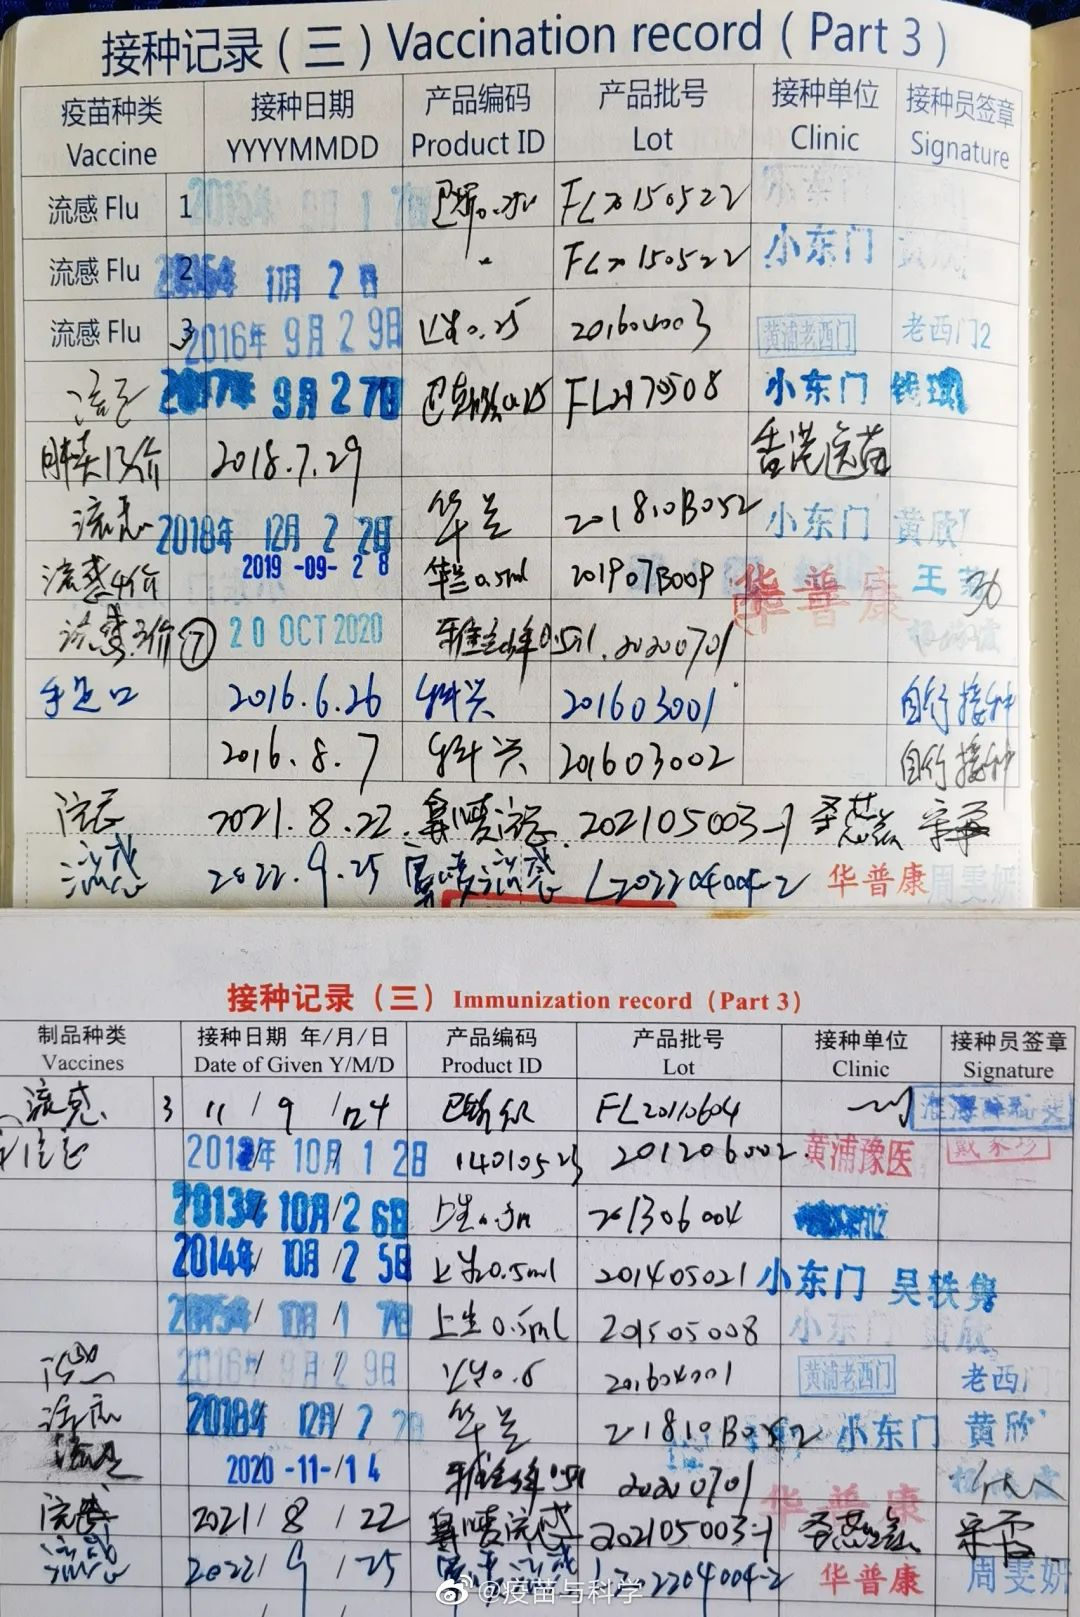 接种记录（三）Vaccination record（Part 3）
疫苗种类 接种日期 产品编码 产品批号 接种单位 接种员签章
Vaccine YYYYMMDD Product ID Lot Clinic Signature
流感 Flu 1 2015年 9月17日 0.25 FL20150522
流感 Flu 2 11月2日 FL20150522 小东门 黄欣
流感 Flu 3 2016年9月29日 上生0.25 201604003 黄浦老西门 老西门2
流感 2017年9月27日 巴斯德0.25 小东门
肺炎13价 2018.7.29 香港疫苗
流感 2018年12月22日 华兰 201810B052 小东门 黄欣
流感4价 2019-09-28 华兰0.5ml 201907B009 华普康 王
流感3价 ⑦ 20 OCT 2020 0.5ml 20200701
手足口 2016.6.26 科兴 201603001 自行接种
2016.8.7 科兴 201603002 自行接种
流感 2021.8.22 鼻喷流感 202105003-1
流感 2022.9.25 鼻喷流感 L202204004-2 华普康 周雯妍
接种记录（三）Immunization record（Part 3）
制品种类 接种日期 年/月/日 产品编码 产品批号 接种单位 接种员签章
Vaccines Date of Given Y/M/D Product ID Lot Clinic Signature
流感 3 11/9/24 巴斯德 FL20110604
流感 2012年10月12日 201206002 黄浦豫医
2013年10月26日 上生0.5ml 201306004
2014年10月25日 上生0.5ml 201405021 小东门 吴轶隽
2015年10月17日 上生0.5ml 201505008 小东门 黄欣
流感 2016年9月29日 上生0.5 201604001 黄浦老西门 老西门
流感 2018年12月22日 华兰 201810B052 小东门 黄欣
流感 2020-11-14 20200701 华普康
流感 2021/8/22 鼻喷流感 202105003-1
流感 2022/9/25 鼻喷流感 L202204004-2 华普康 周雯妍
@疫苗与科学